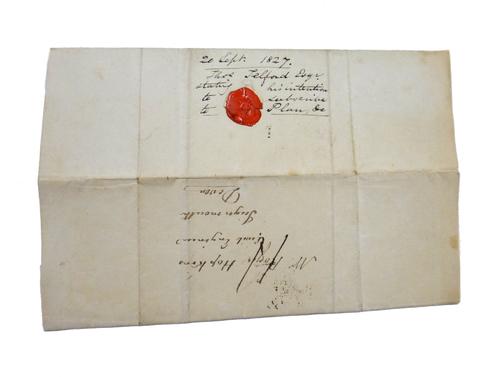 20 Sept. 1827.
Thos Telford Esqr.
stating his intention
to subscribe
to Plan, &c
Mr Roger Hopkins
Civil Engineer
Teignmouth
Devon